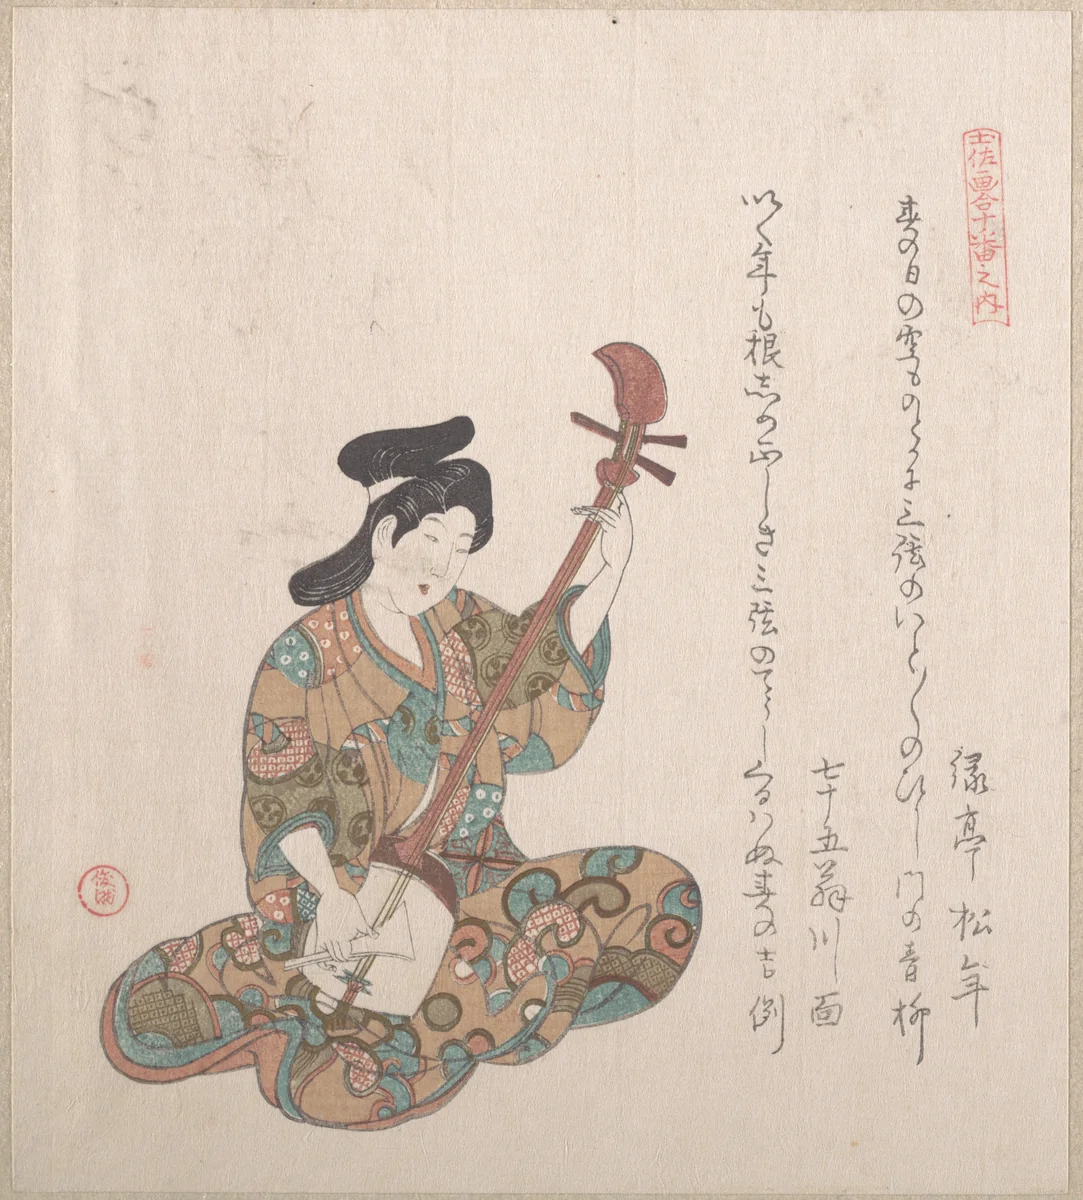 土佐画合十番之内
春の日の空ものとかに三弦のいとしの
門の青柳
緑亭松年
いく年も根しめ正しき三弦の
ぬ春の吉例
七十五翁川面
俊満